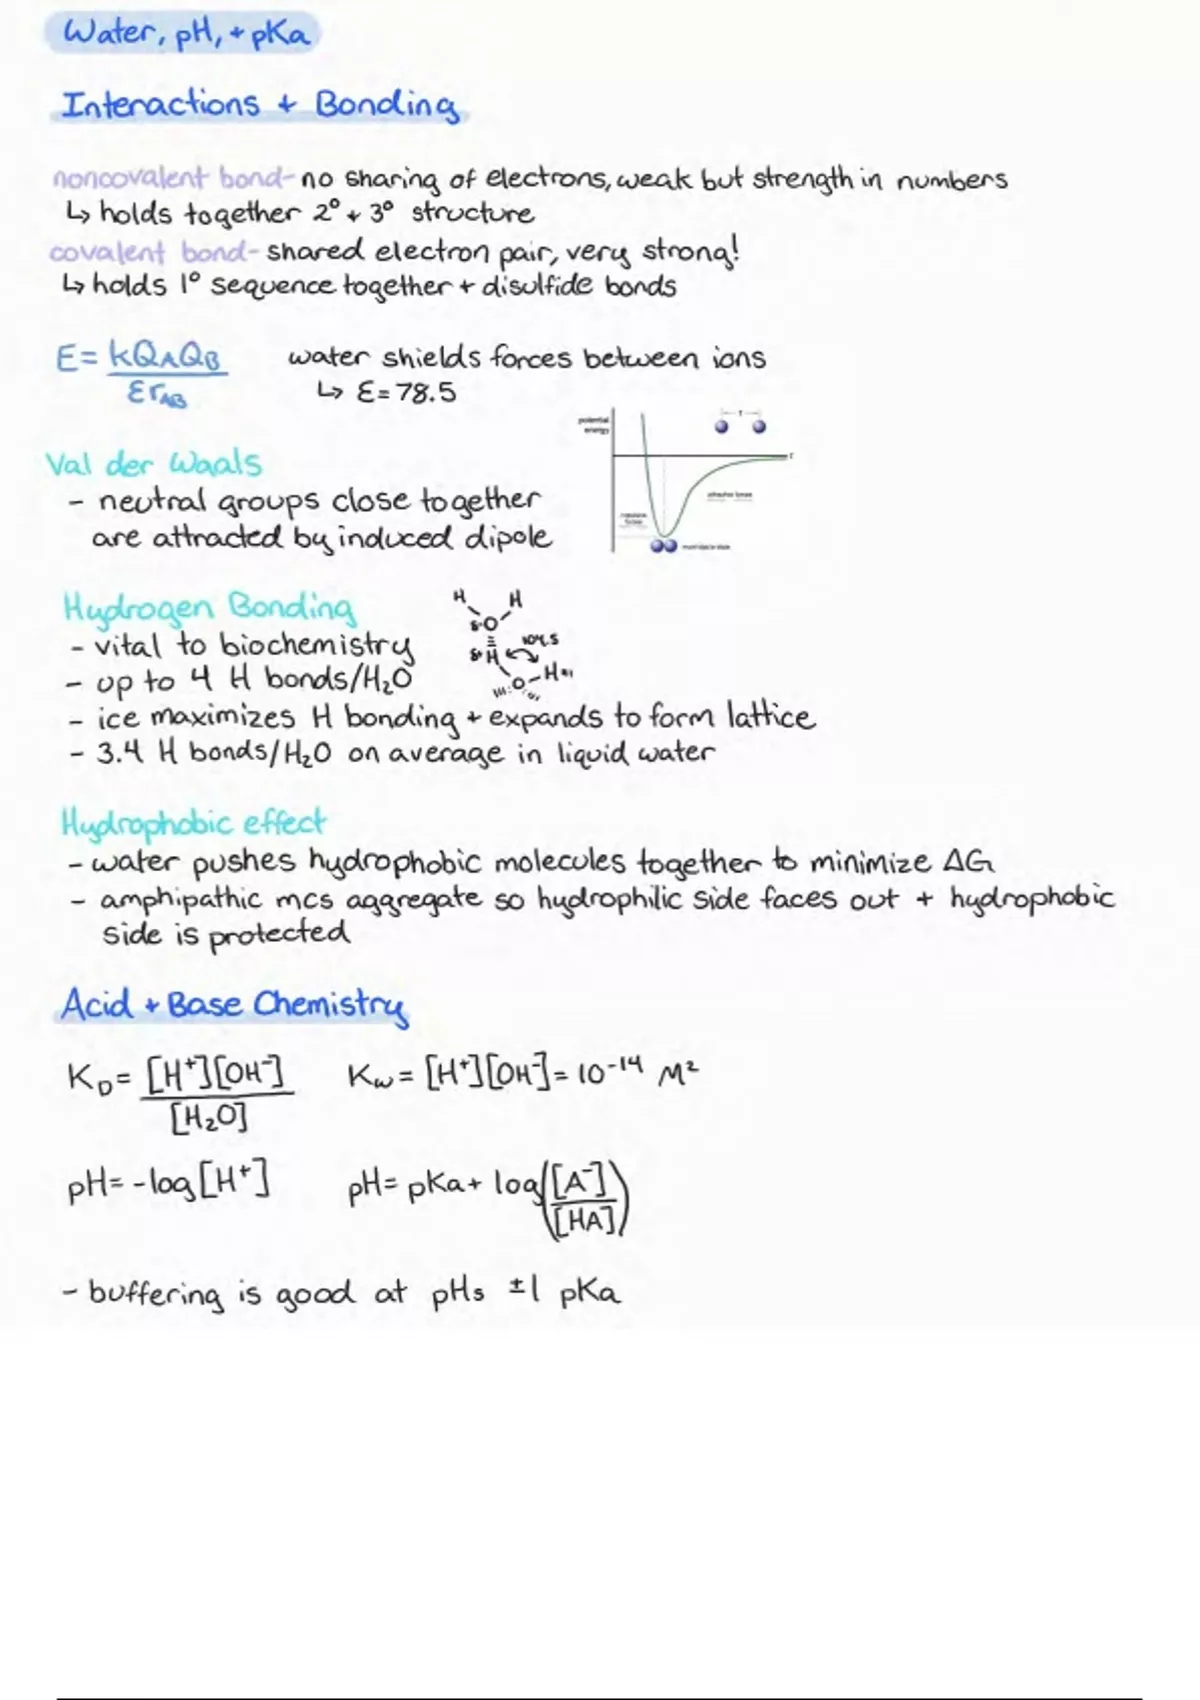 Water, pH, + pKa
Interactions + Bonding
noncovalent bond- no sharing of electrons, weak but strength in numbers
↳ holds together 2° + 3° structure
covalent bond- shared electron pair, very strong!
↳ holds 1° sequence together + disulfide bonds
E = kQAQB / ƐrAB
water shields forces between ions
↳ Ɛ = 78.5
potential energy
r
r
Val der Waals
- neutral groups close together
are attracted by induced dipole
Hydrogen Bonding
- vital to biochemistry
- up to 4 H bonds/H₂O
- ice maximizes H bonding + expands to form lattice
- 3.4 H bonds/H₂O on average in liquid water
H H
δ-O
104.5
δ+H
O-H
Hydrophobic effect
- water pushes hydrophobic molecules together to minimize ΔG
- amphipathic mcs aggregate so hydrophilic side faces out + hydrophobic
side is protected
Acid + Base Chemistry
KD = [H⁺][OH⁻] / [H₂O]
Kw = [H⁺][OH⁻] = 10⁻¹⁴ M²
pH = -log[H⁺]
pH = pKa + log([A⁻] / [HA])
- buffering is good at pHs ±1 pKa